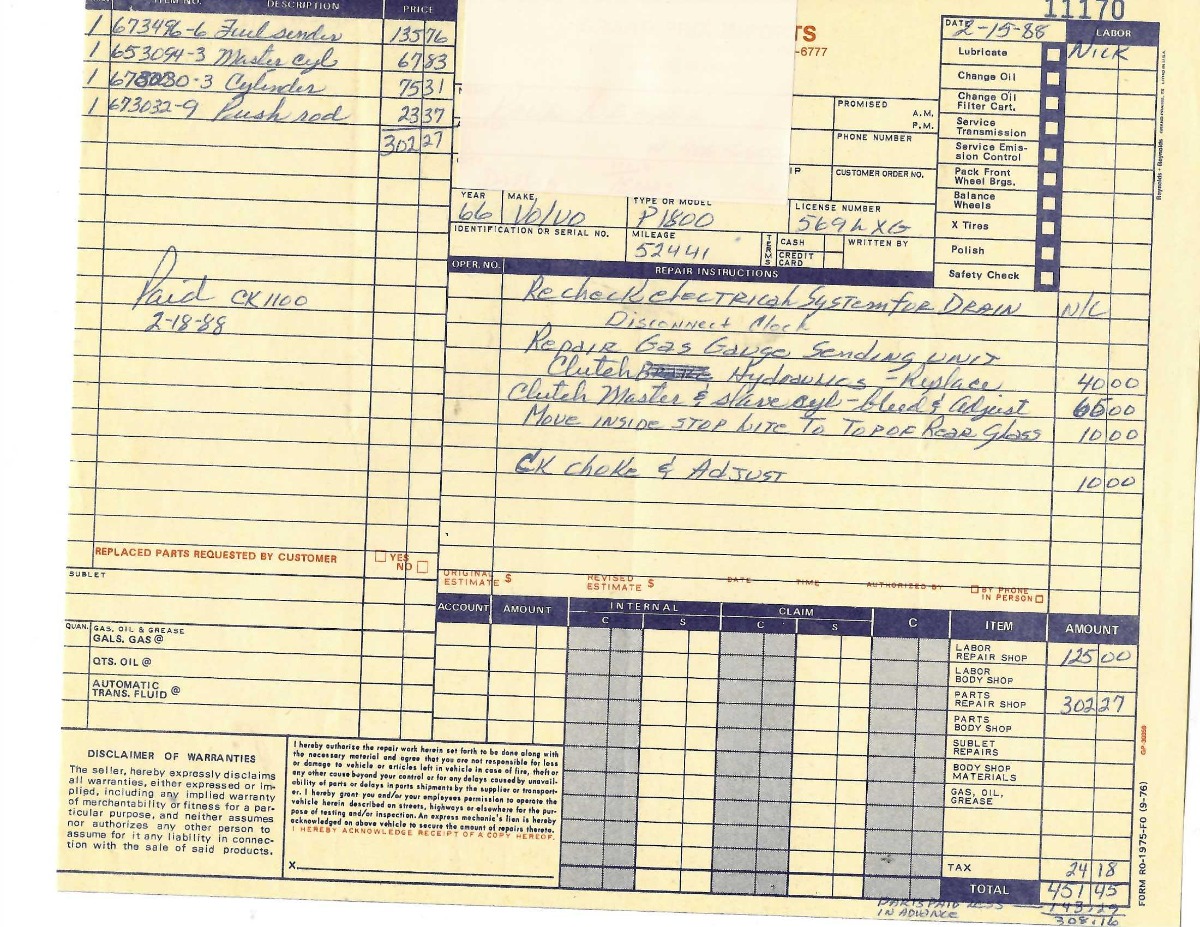 11170
ITEM NO. DESCRIPTION PRICE
1 673496-6 Fuel sender 135 76
1 653094-3 Master cyl 67 83
1 678030-3 Cylinder 75 31
1 673032-9 Push rod 23 37
302 27
Paid CK 1100
2-18-88
REPLACED PARTS REQUESTED BY CUSTOMER YES NO
SUBLET
QUAN. GAS, OIL & GREASE
GALS. GAS @
QTS. OIL @
AUTOMATIC
TRANS. FLUID @
TS
-6777
DATE 2-15-88 LABOR
Lubricate NICK
Change Oil
Change Oil
Filter Cart.
Service
Transmission
Service Emis-
sion Control
Pack Front
Wheel Brgs.
Balance
Wheels
X Tires
Polish
Safety Check
PROMISED
A.M.
P.M.
PHONE NUMBER
IP CUSTOMER ORDER NO.
YEAR MAKE TYPE OR MODEL LICENSE NUMBER
66 Volvo P1800 569LXG
IDENTIFICATION OR SERIAL NO. MILEAGE TERMS CASH WRITTEN BY
52441 CREDIT CARD
OPER. NO. REPAIR INSTRUCTIONS
Recheck electrical System for DRAIN N/C
Disconnect Clock
Repair Gas Gauge Sending unit
Clutch Hydraulics - Replace 40 00
Clutch Master & slave cyl - bleed & Adjust 65 00
Move inside stop lite to top of Rear Glass 10 00
CK choke & Adjust 10 00
ORIGINAL ESTIMATE $ REVISED ESTIMATE $ DATE TIME AUTHORIZED BY BY PHONE IN PERSON
ACCOUNT AMOUNT INTERNAL CLAIM ITEM AMOUNT
C S C S C
LABOR
REPAIR SHOP 125 00
LABOR
BODY SHOP
PARTS
REPAIR SHOP 302 27
PARTS
BODY SHOP
SUBLET
REPAIRS
BODY SHOP
MATERIALS
GAS, OIL,
GREASE
TAX 24 18
TOTAL 451 45
PARTS PAID LESS 143.29
IN ADVANCE 308.16
DISCLAIMER OF WARRANTIES
The seller, hereby expressly disclaims
all warranties, either expressed or im-
plied, including any implied warranty
of merchantability or fitness for a par-
ticular purpose, and neither assumes
nor authorizes any other person to
assume for it any liability in connec-
tion with the sale of said products.
I hereby authorize the repair work herein set forth to be done along with
the necessary material and agree that you are not responsible for loss
or damage to vehicle or articles left in vehicle in case of fire, theft or
any other cause beyond your control or for any delays caused by unavail-
ability of parts or delays in parts shipments by the supplier or transport-
er. I hereby grant you and/or your employees permission to operate the
vehicle herein described on streets, highways or elsewhere for the pur-
pose of testing and/or inspection. An express mechanic's lien is hereby
acknowledged on above vehicle to secure the amount of repairs thereto.
I HEREBY ACKNOWLEDGE RECEIPT OF A COPY HEREOF.
X
FORM RO-1975-FO (9-76)
Reynolds + Reynolds